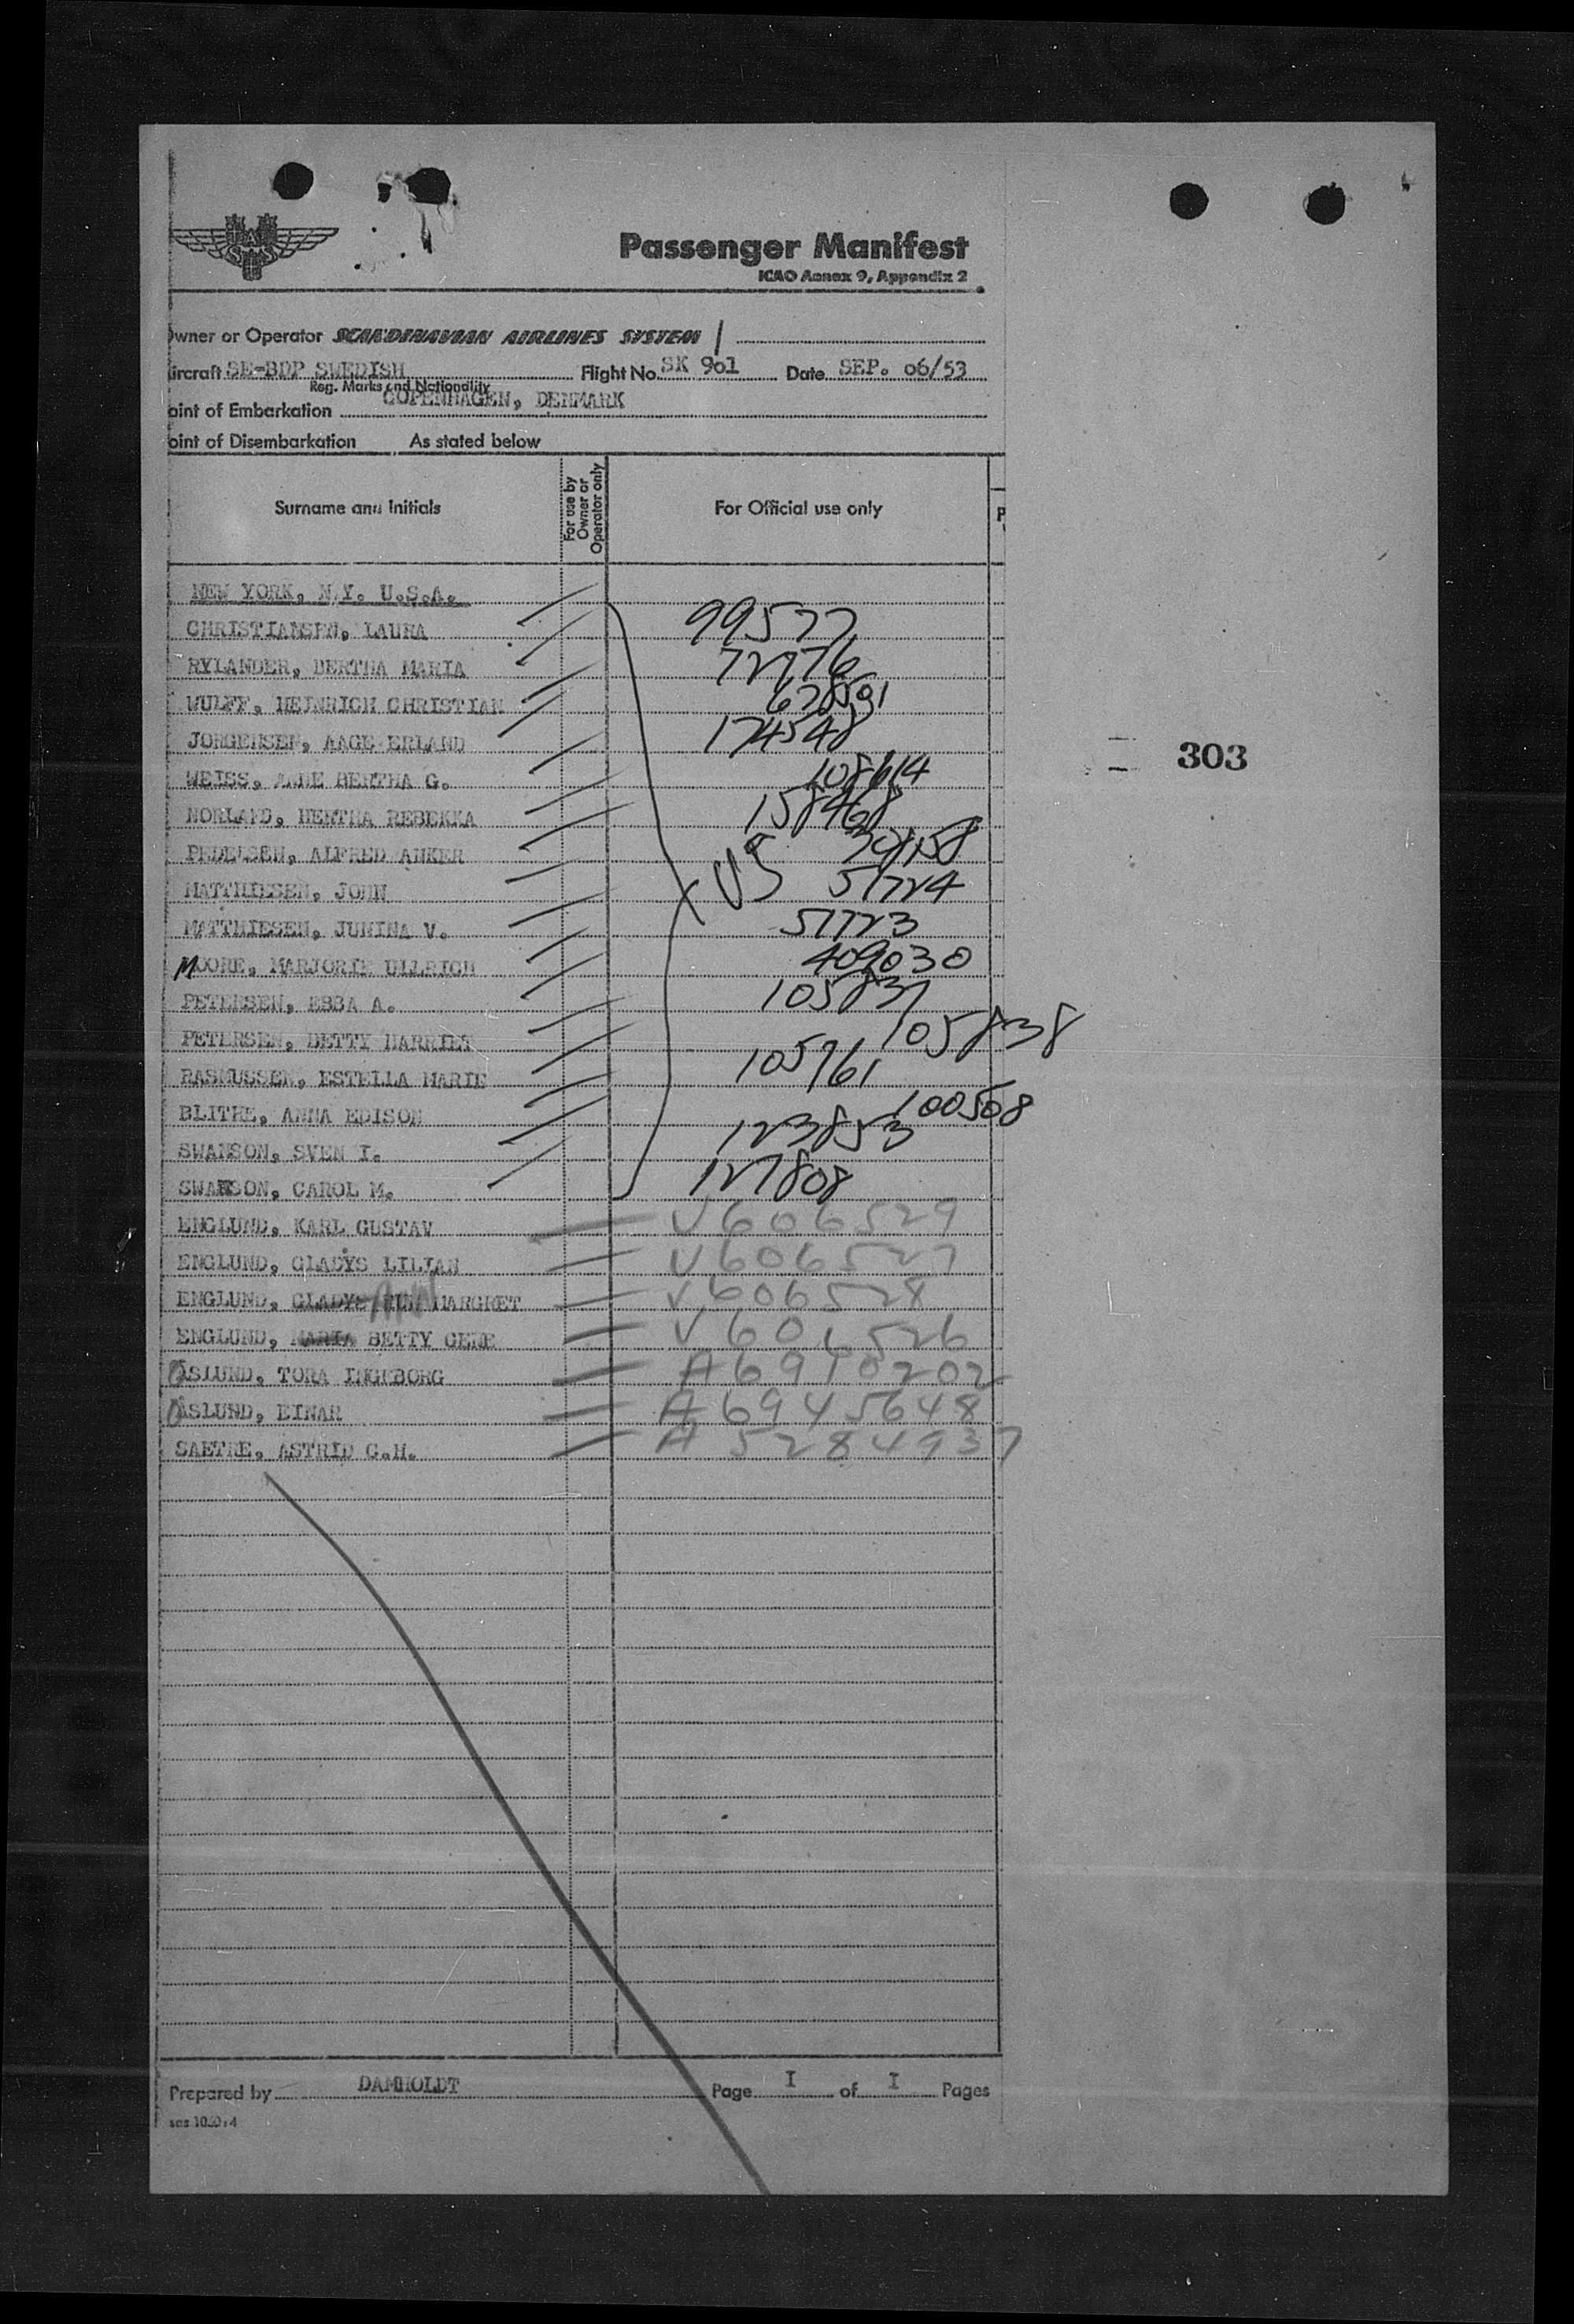 TAB
SAS
Passenger Manifest
ICAO Annex 9, Appendix 2
Owner or Operator SCANDINAVIAN AIRLINES SYSTEM
ircraft SE-BDP SWEDISH Flight No. SK 901 Date SEP. 06/53
Reg. Marks and Nationality
oint of Embarkation COPENHAGEN, DENMARK
oint of Disembarkation As stated below
Surname and Initials For use by Owner or Operator only For Official use only P
NEW YORK, N.Y. U.S.A.
CHRISTIANSEN, LAURA 99577
RYLANDER, BERTHA MARIA 72976
WULFF, HEINRICH CHRISTIAN 678591
JORGENSEN, AAGE ERLAND 174548
WEISS, ANNE BERTHA G. 108614
NORLAND, HERTHA REBEKKA 158468
PEDERSEN, ALFRED ANKER 39158
MATTHIESEN, JOHN US 51724
MATTHIESEN, JUNINA V. 51723
MOORE, MARJORIE ULLRICH 409030
PETERSEN, EBBA A. 105837
PETERSEN, BETTY HARRIET 105838
RASMUSSEN, ESTELLA MARIE 105961
BLITHE, ANNA EDISON 100508
SWANSON, SVEN I. 123853
SWANSON, CAROL M. 127808
ENGLUND, KARL GUSTAV V606529
ENGLUND, GLADYS LILIAN V606527
ENGLUND, GLADYS ANN MARGRET V606528
ENGLUND, MARIA BETTY GENE V606526
ASLUND, TORA INGEBORG A6910202
ASLUND, EINAR A6945648
SAETRE, ASTRID C.H. A5284937
303
Prepared by DAMHOLDT Page I of I Pages